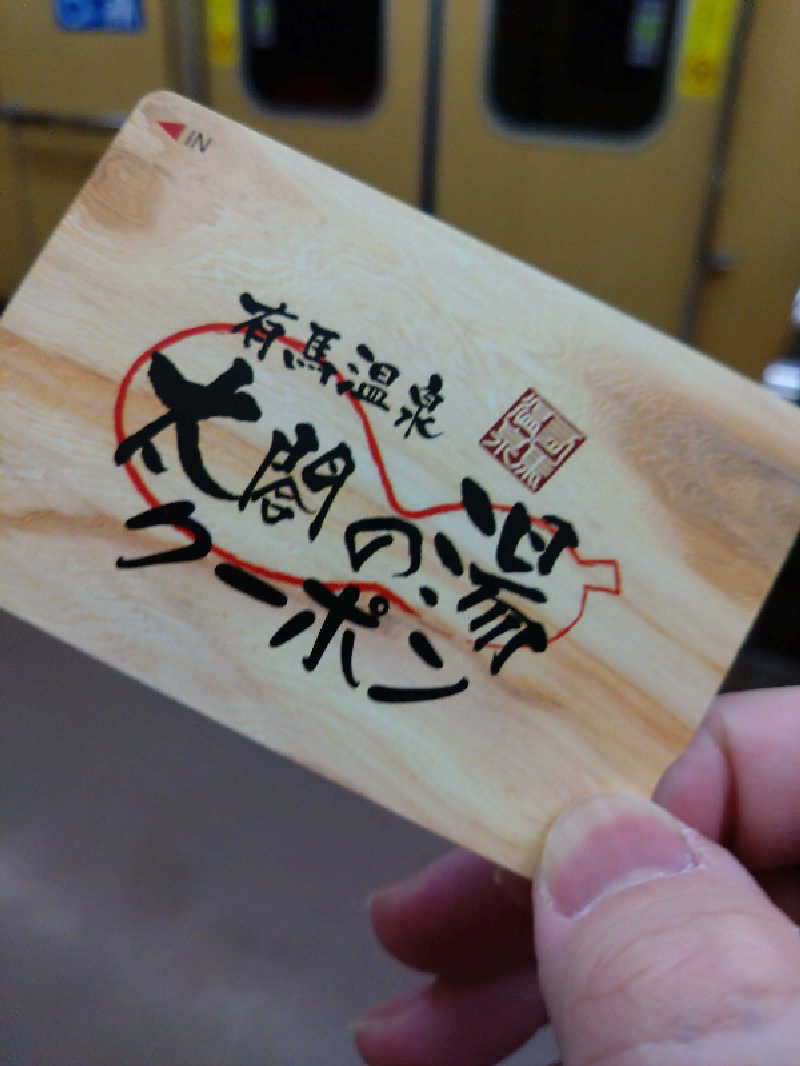 ◀IN
有馬温泉
太閤の湯
クーポン
有馬
温泉